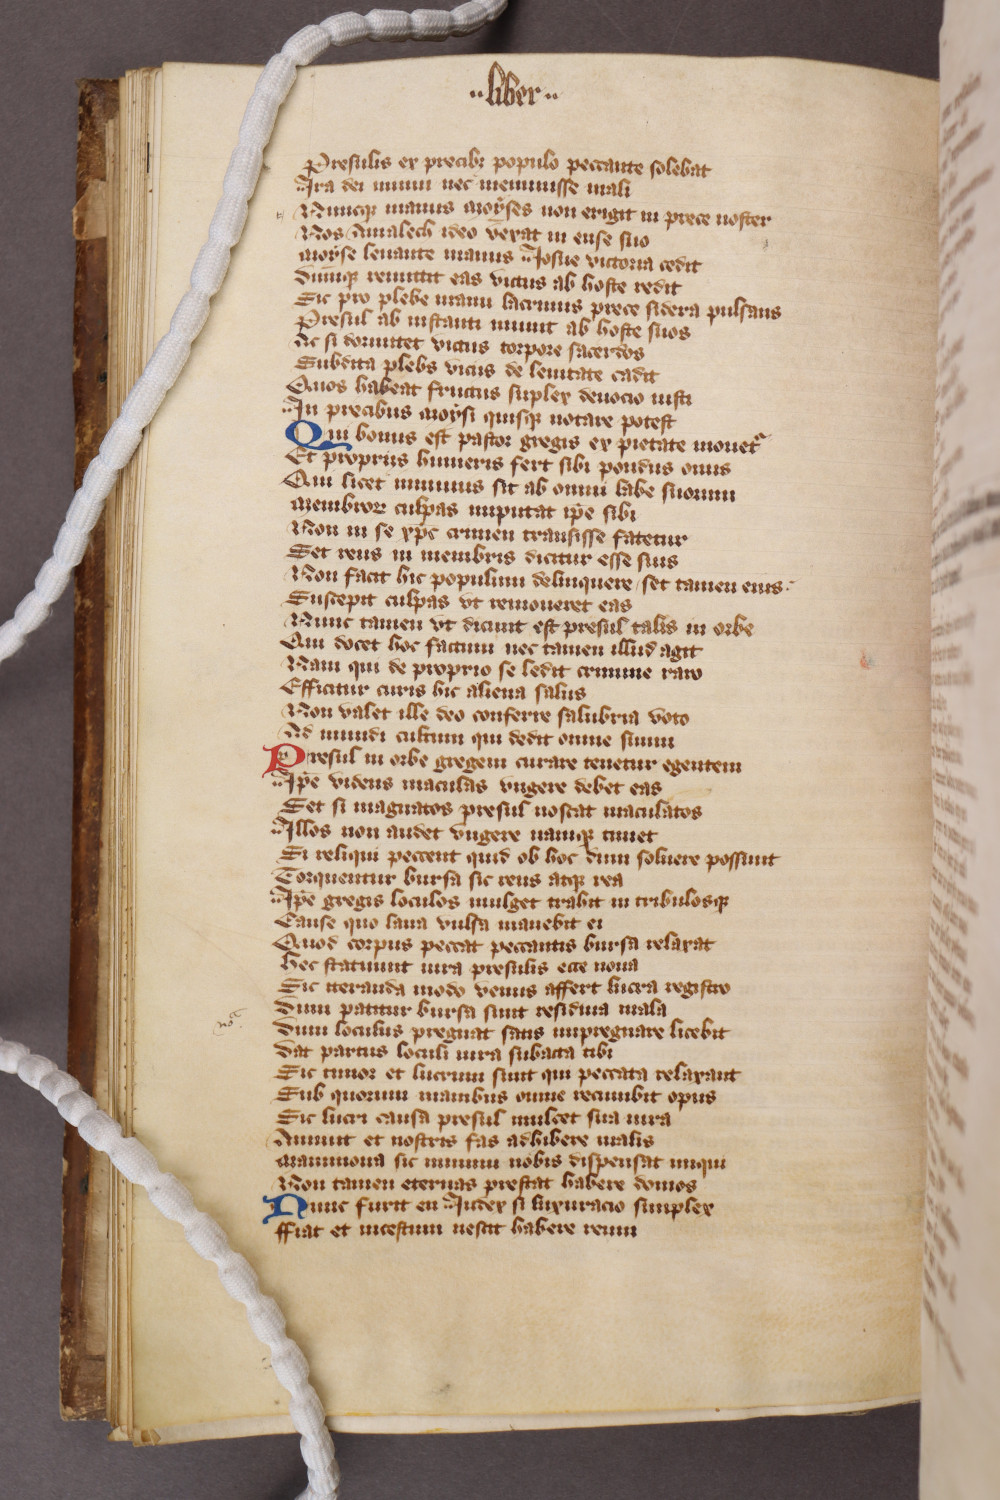 ..liber..
Presulis ex precibus populo peccante solebat
Ira dei minui nec meminisse mali
Nuncque manus Moyses non erigit in prece noster
Nos Amalech ideo vexat in ense suo
Moyse leuante manus Iosue victoria cedit
Dumque remittit eas victus ab hoste redit
Sic pro plebe manu lacrimis prece sidera pulsans
Presul ab instanti muniit ab hoste suos
Ac si dormitet victus torpore sacerdos
Subdita plebs viciis de leuitate cadit
Quos habeat fructus suplex deuocio iusti
In precibus Moysi quisque notare potest
Qui bonus est pastor gregis ex pietate mouetur
Et propriis humeris fert sibi pondus onus
Qui licet inmunis sit ab omni labe suorum
Membrorum culpas imputat ipe sibi
Non in se xpc crimen transisse fatetur
Set reus in membris dicitur esse suis
Non facit hic populum delinquere / set tamen eius
Suscepit culpas vt remoueret eas
Nunc tamen vt dicunt est presul talis in orbe
Qui docet hoc factum nec tamen illud agit
Nam qui de proprio se ledit crimine raro
Efficitur curis hic aliena salus
Non valet ille deo conferre salubria voto
Ad mundi cultum qui dedit omne suum
Presul in orbe gregem curare tenetur egentem
Ipe videns maculas vngere debet eas
Set si magnatos presul noscat maculatos
Illos non audet vngere namque timet
Si reliqui peccent quid ob hoc dum soluere possunt
Torquentur bursa sic reus atque rea
Ipe gregis loculos mulget trahit in tribulosque
Cause quo lana vulsa manebit ei
Quod corpus peccat peccantis bursa relaxat
Hec statuunt iura presulis ecce noua
Sic iteranda modo venus affert lucra registro
Dum patitur bursa sunt residiua mala
Dum loculus pregnat satis impregnare licebit
Dat partus loculi iura subacta tibi
Sic timor et lucrum sunt qui peccata relaxant
Sub quorum manibus omne recumbit opus
Sic lucri causa presul mulcet sua iura
Annuit et nostris fas adhibere malis
Mammona sic nummi nobis dispensat iniqui
Non tamen eternas prestat habere domos
Nunc furit en Iudex si luxuracio simplex
ffiat et incestum nescit habere reum